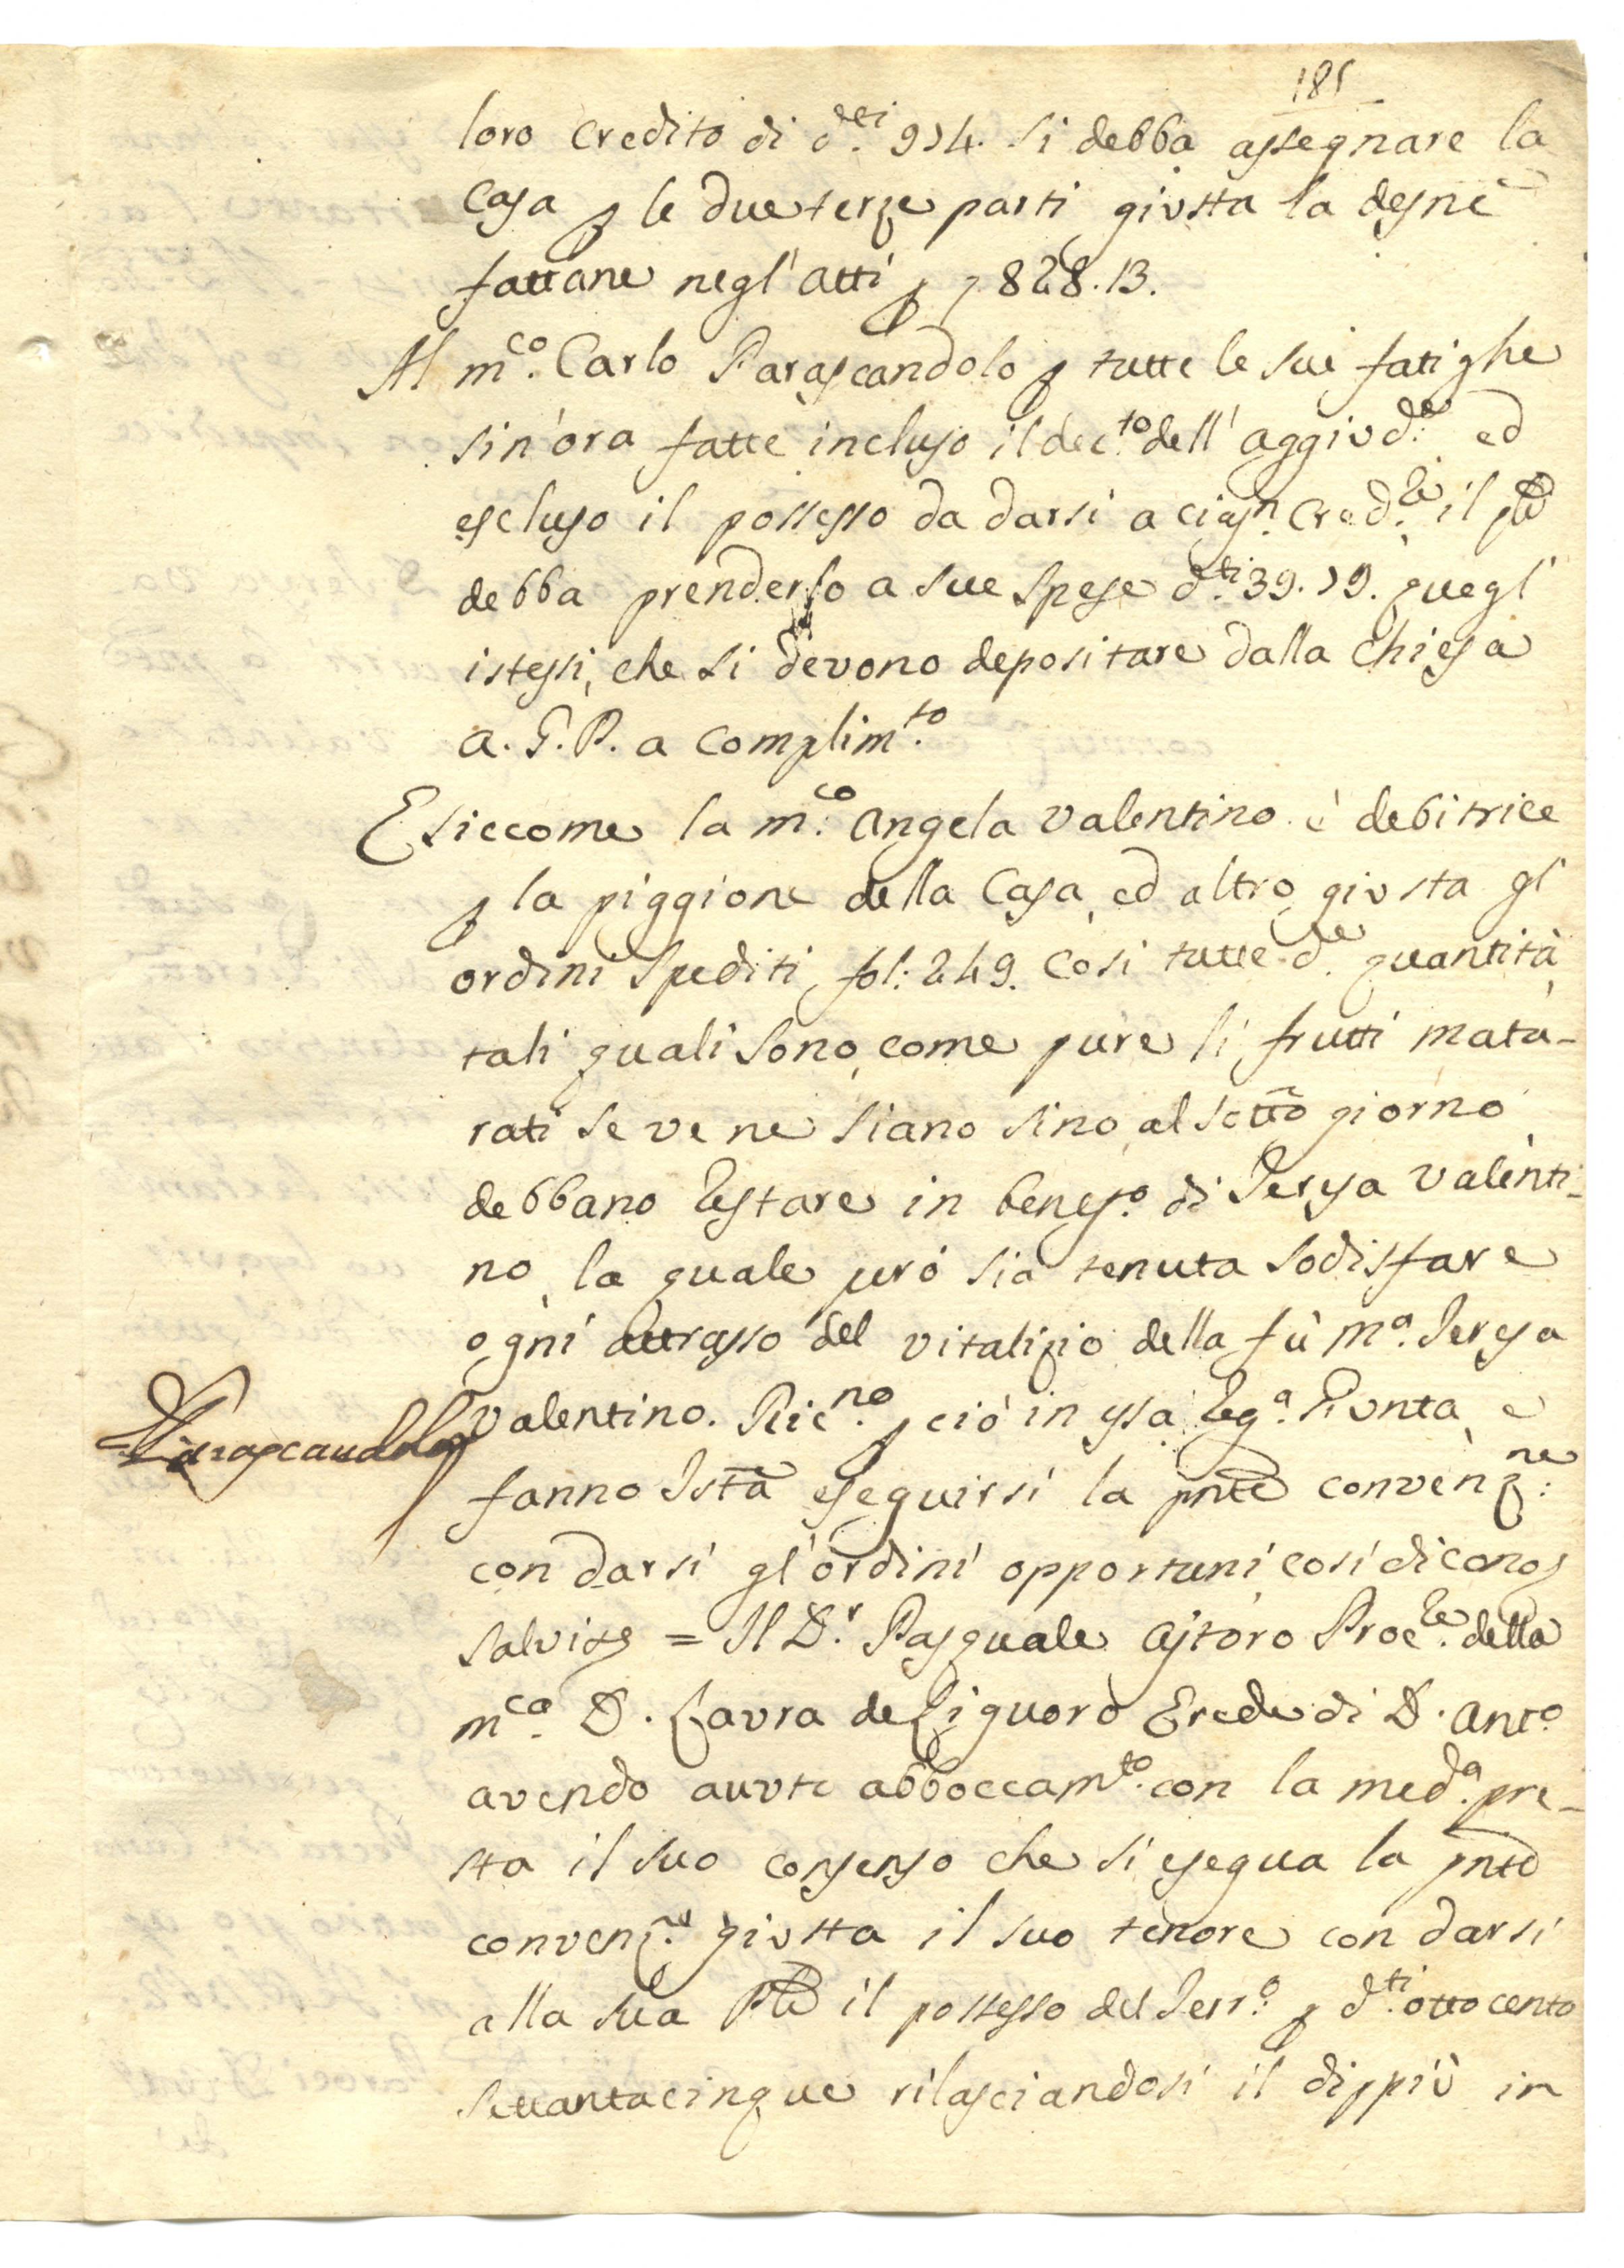 185
loro credito di d.ti 914. si debba assegnare la
Casa p le due terze parti giusta la desñe
fattane negl'atti p 828.13.
Al m.co Carlo Parascandolo p tutte le sue fatighe
sin'ora fatte incluso il dec.to dell'aggiud.e ed
escluso il possesso da darsi a ciasn. Cred.re il
debba prenderlo a sue spese d.ti 39.19. quegl'
istessi, che si devono depositare dalla Chiesa
A. G. P. a complim.to
E siccome la m.co Angela Valentino è debitrice
p la piggione della Casa, ed altro giusta gl'
ordini spediti, fol: 249. Così tutte d.e quantità
tali quali sono, come pure li frutti matu-
rati se ve ne siano sino al settõ giorno
debbano restare in benefo. di Teresa Valenti-
no, la quale però sia tenuta sodisfare
ogni attrasso del vitalizio della fù M.a Teresa
Valentino. Ric.no p ciò in essa Reg.a Giunta, e
fanno Istã eseguirsi la pñte convenz.ne
con darsi gl'ordini opportuni così dicono
salvis = Il D.r Pasquale Astoro Proc.re della
m.ca D. Laura de Liguoro Erede di D. Ant.o
avendo auuto abboccam.to con la med.a pre-
sta il suo consenso che si esegua la pñte
convenz.e giusta il suo tenore con darsi
alla sua il possesso del Terr.o p d.ti ottocento
settantacinque rilasciandosi il dippiù in
Parascandolo